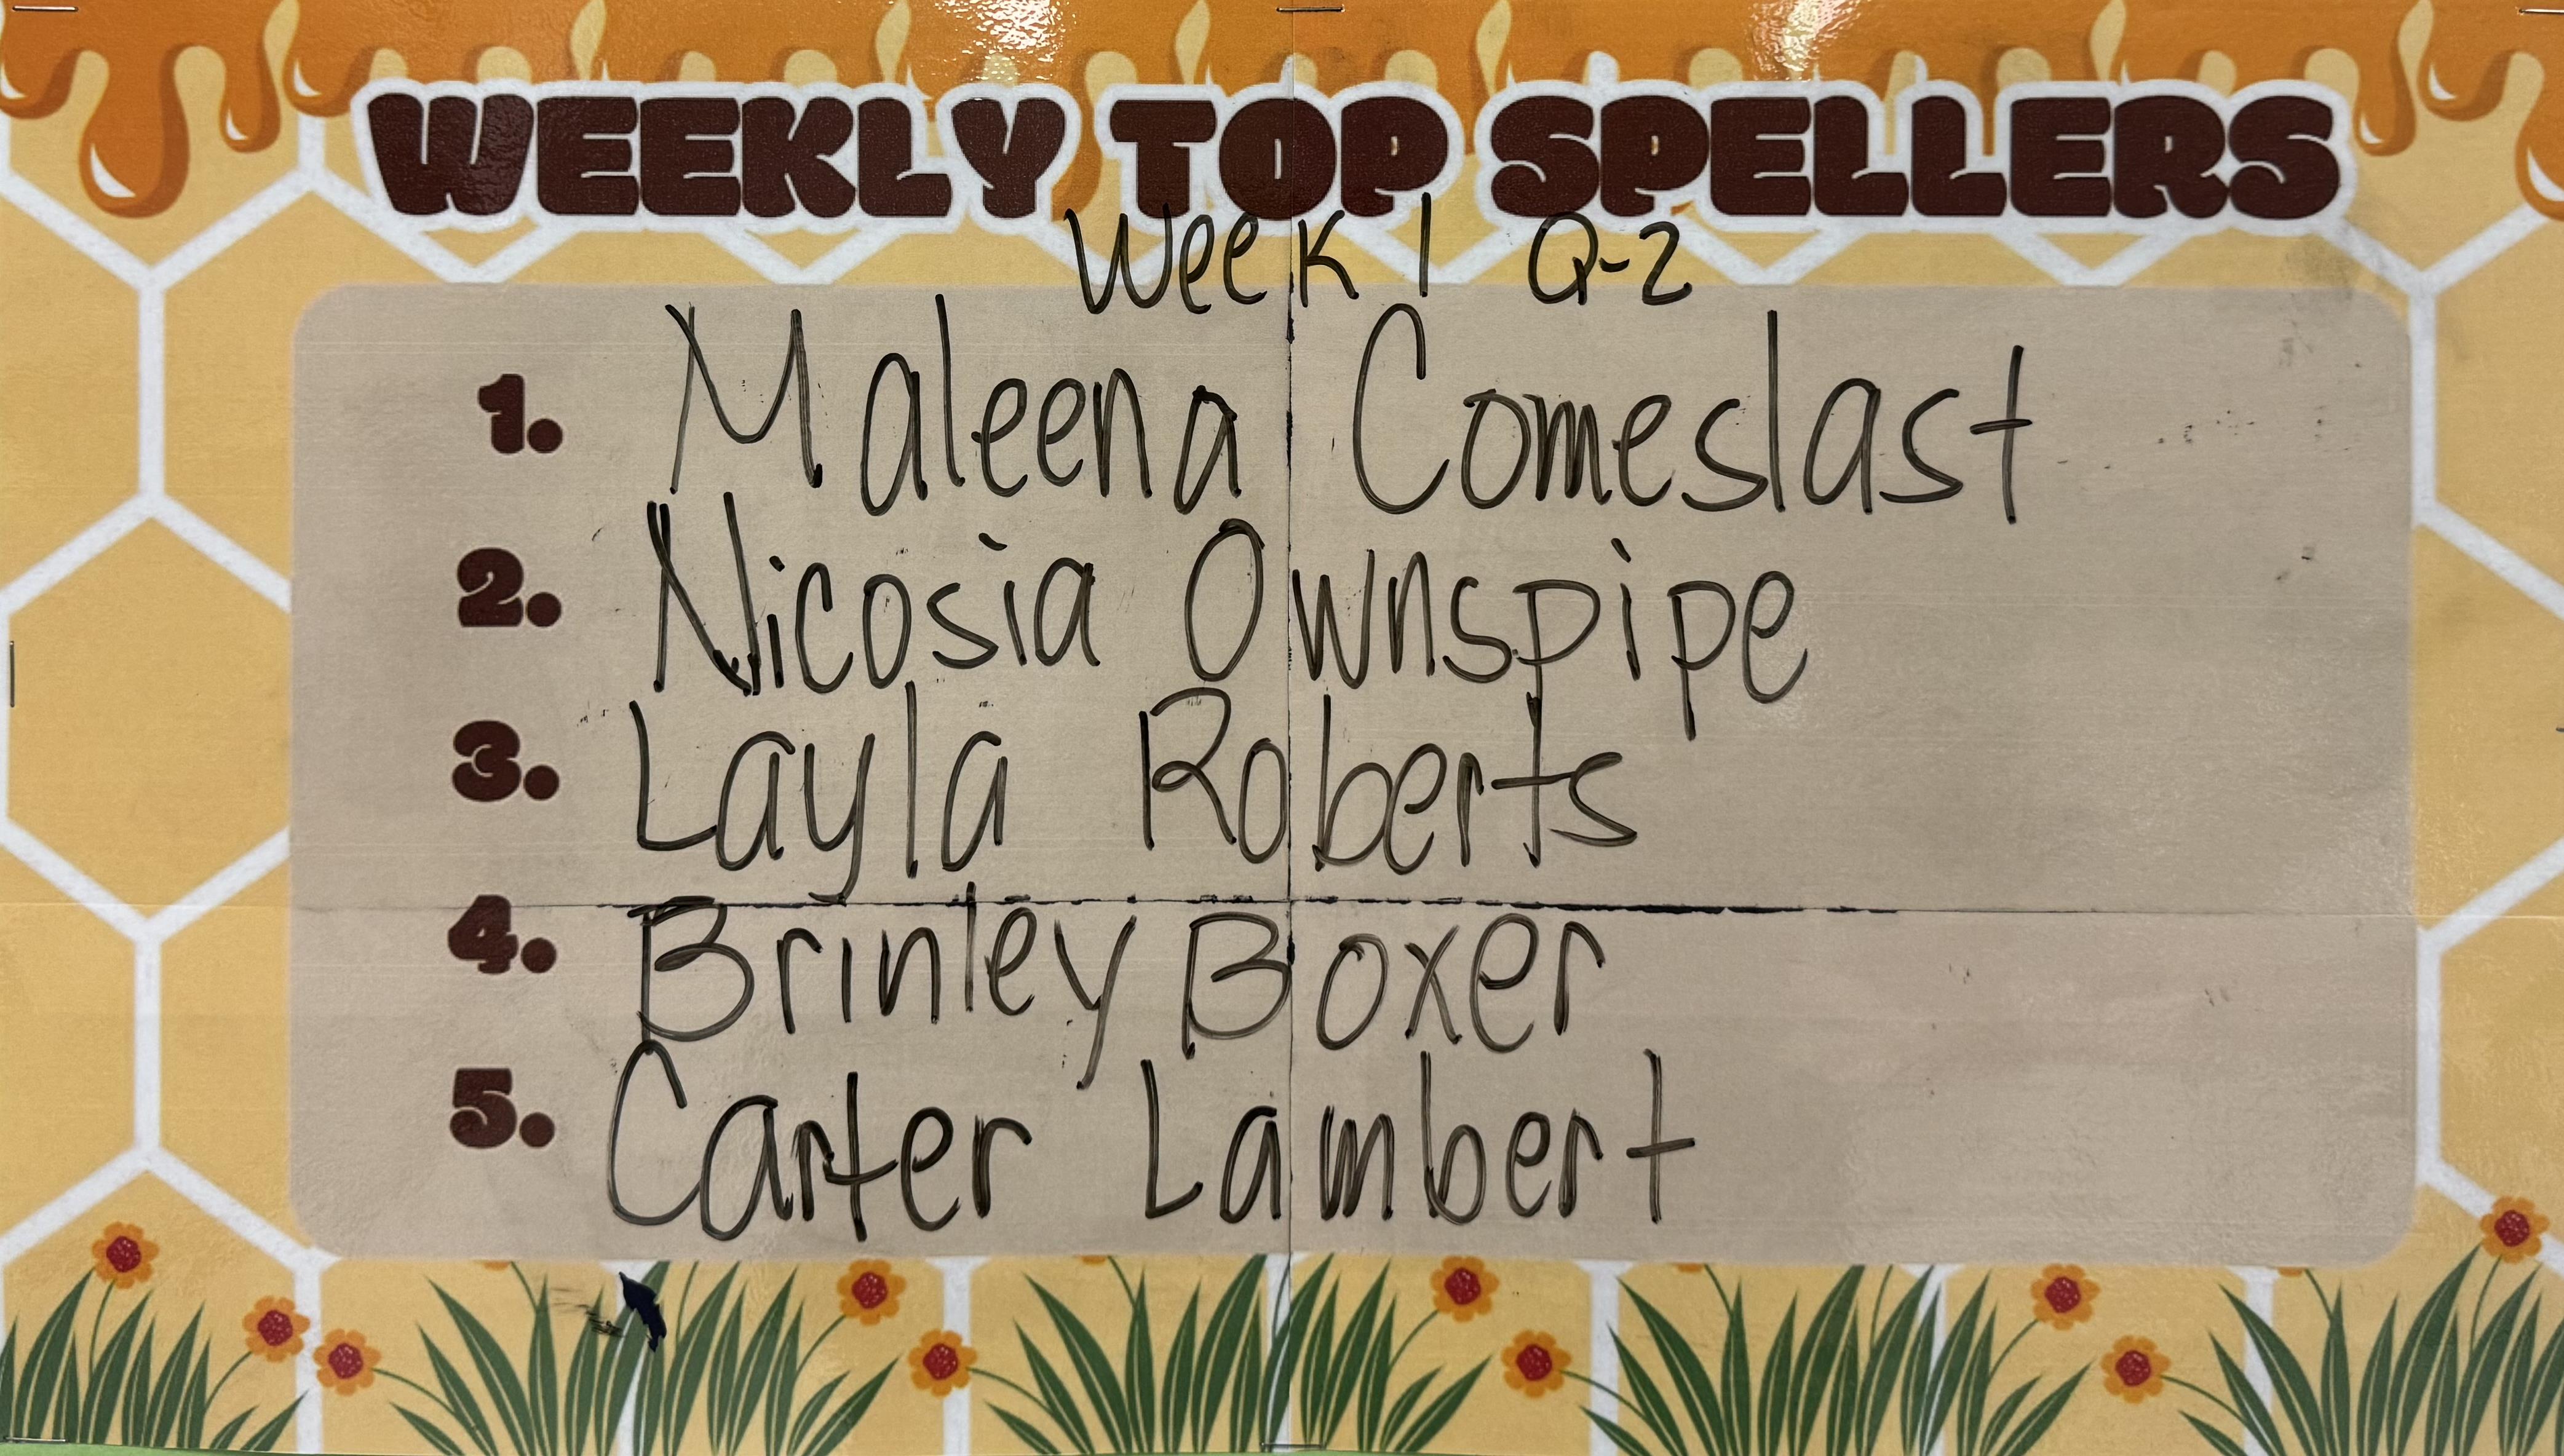 WEEKLY TOP SPELLERS
Week 1 Q-2
1. Maleena Comeslast
2. Nicosia Ownspipe
3. Layla Roberts
4. Brinley Boxer
5. Carter Lambert